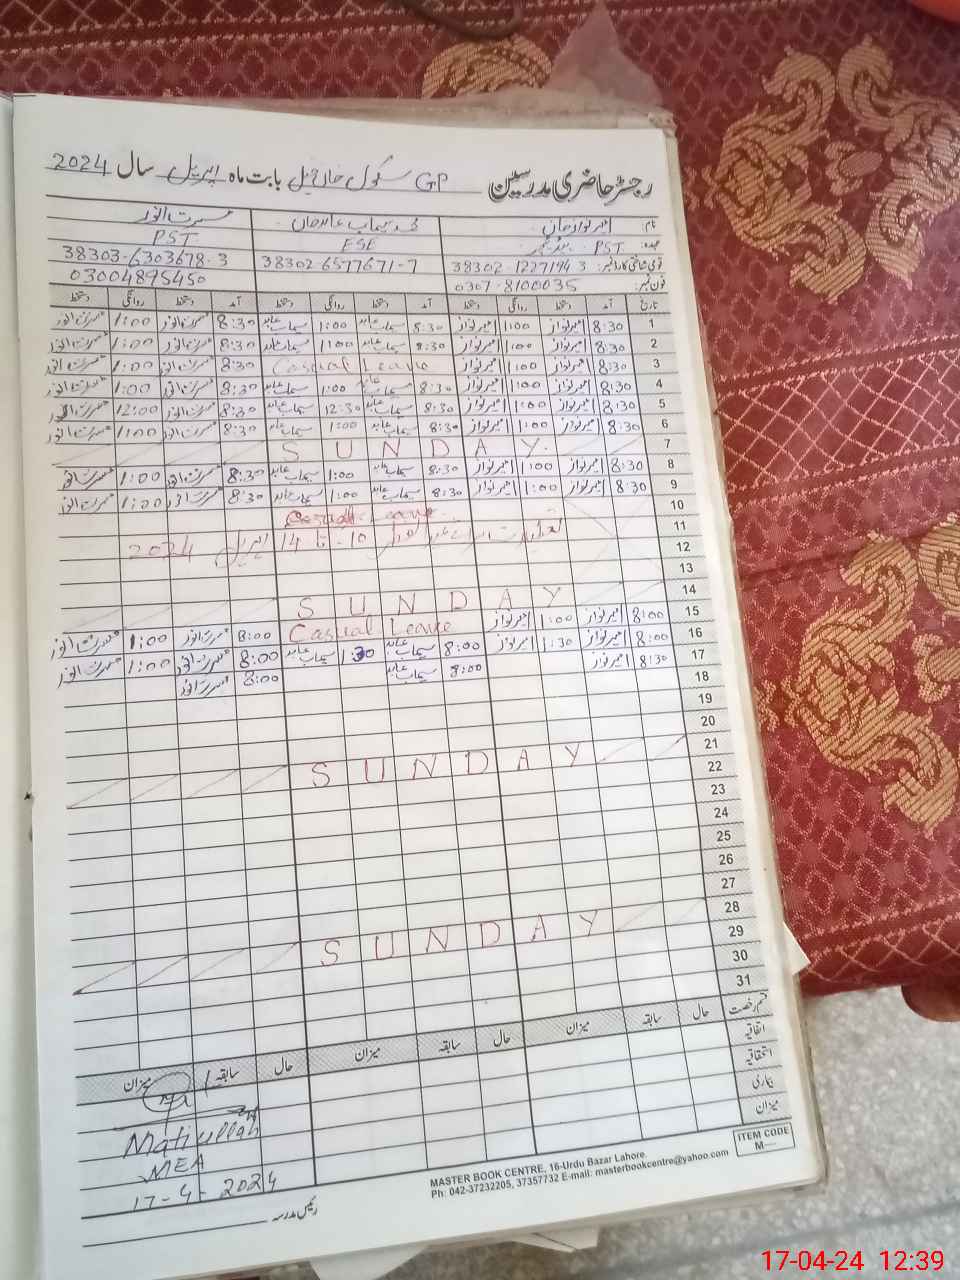 رجسٹر حاضری مدرسین GP سکول خان خیل بابت ماہ اپریل سال 2024
نام: امیر نواز خان محمد سیماب عابد خان مسرت انور
عہدہ: PST ہیڈ ٹیچر ESE PST
قومی شناختی کارڈ نمبر: 38302-1227194-3 38302-6577671-7 38303-6303678-3
فون نمبر: 0307-8100035 03004895450
تاریخ آمد دستخط روانگی دستخط آمد دستخط روانگی دستخط آمد دستخط روانگی دستخط
1 8:30 امیر نواز 1:00 امیر نواز 8:30 سیماب عابد 1:00 سیماب عابد 8:30 مسرت انور 1:00 مسرت انور
2 8:30 امیر نواز 1:00 امیر نواز 8:30 سیماب عابد 1:00 سیماب عابد 8:30 مسرت انور 1:00 مسرت انور
3 8:30 امیر نواز 1:00 امیر نواز Casual Leave 8:30 مسرت انور 1:00 مسرت انور
4 8:30 امیر نواز 1:00 امیر نواز 8:30 سیماب عابد 1:00 سیماب عابد 8:30 مسرت انور 1:00 مسرت انور
5 8:30 امیر نواز 1:00 امیر نواز 8:30 سیماب عابد 12:30 سیماب عابد 8:30 مسرت انور 12:00 مسرت انور
6 8:30 امیر نواز 1:00 امیر نواز 8:30 سیماب عابد 1:00 سیماب عابد 8:30 مسرت انور 1:00 مسرت انور
7 SUNDAY
8 8:30 امیر نواز 1:00 امیر نواز 8:30 سیماب عابد 1:00 سیماب عابد 8:30 مسرت انور 1:00 مسرت انور
9 8:30 امیر نواز 1:00 امیر نواز 8:30 سیماب عابد 1:00 سیماب عابد 8:30 مسرت انور 1:00 مسرت انور
10 Casual Leave
11 تعطیلات برائے عید الفطر 10 تا 14 اپریل 2024
12
13
14 SUNDAY
15 8:00 امیر نواز 1:00 امیر نواز Casual Leave 8:00 مسرت انور 1:00 مسرت انور
16 8:00 امیر نواز 1:30 امیر نواز 8:00 سیماب عابد 1:30 سیماب عابد 8:00 مسرت انور 1:00 مسرت انور
17 8:30 امیر نواز 8:00 سیماب عابد 8:00 مسرت انور
18
19
20
21 SUNDAY
22
23
24
25
26
27
28 SUNDAY
29
30
31
قسم رخصت حال سابقہ میزان حال سابقہ میزان حال سابقہ میزان
اتفاقیہ
استحقاقیہ
بیماری
میزان
Matiullah
MEA
17-4-2024
رئیس مدرسہ
MASTER BOOK CENTRE, 16-Urdu Bazar Lahore.
Ph: 042-37232205, 37357732 E-mail: masterbookcentre@yahoo.com
ITEM CODE
M----
17-04-24 12:39